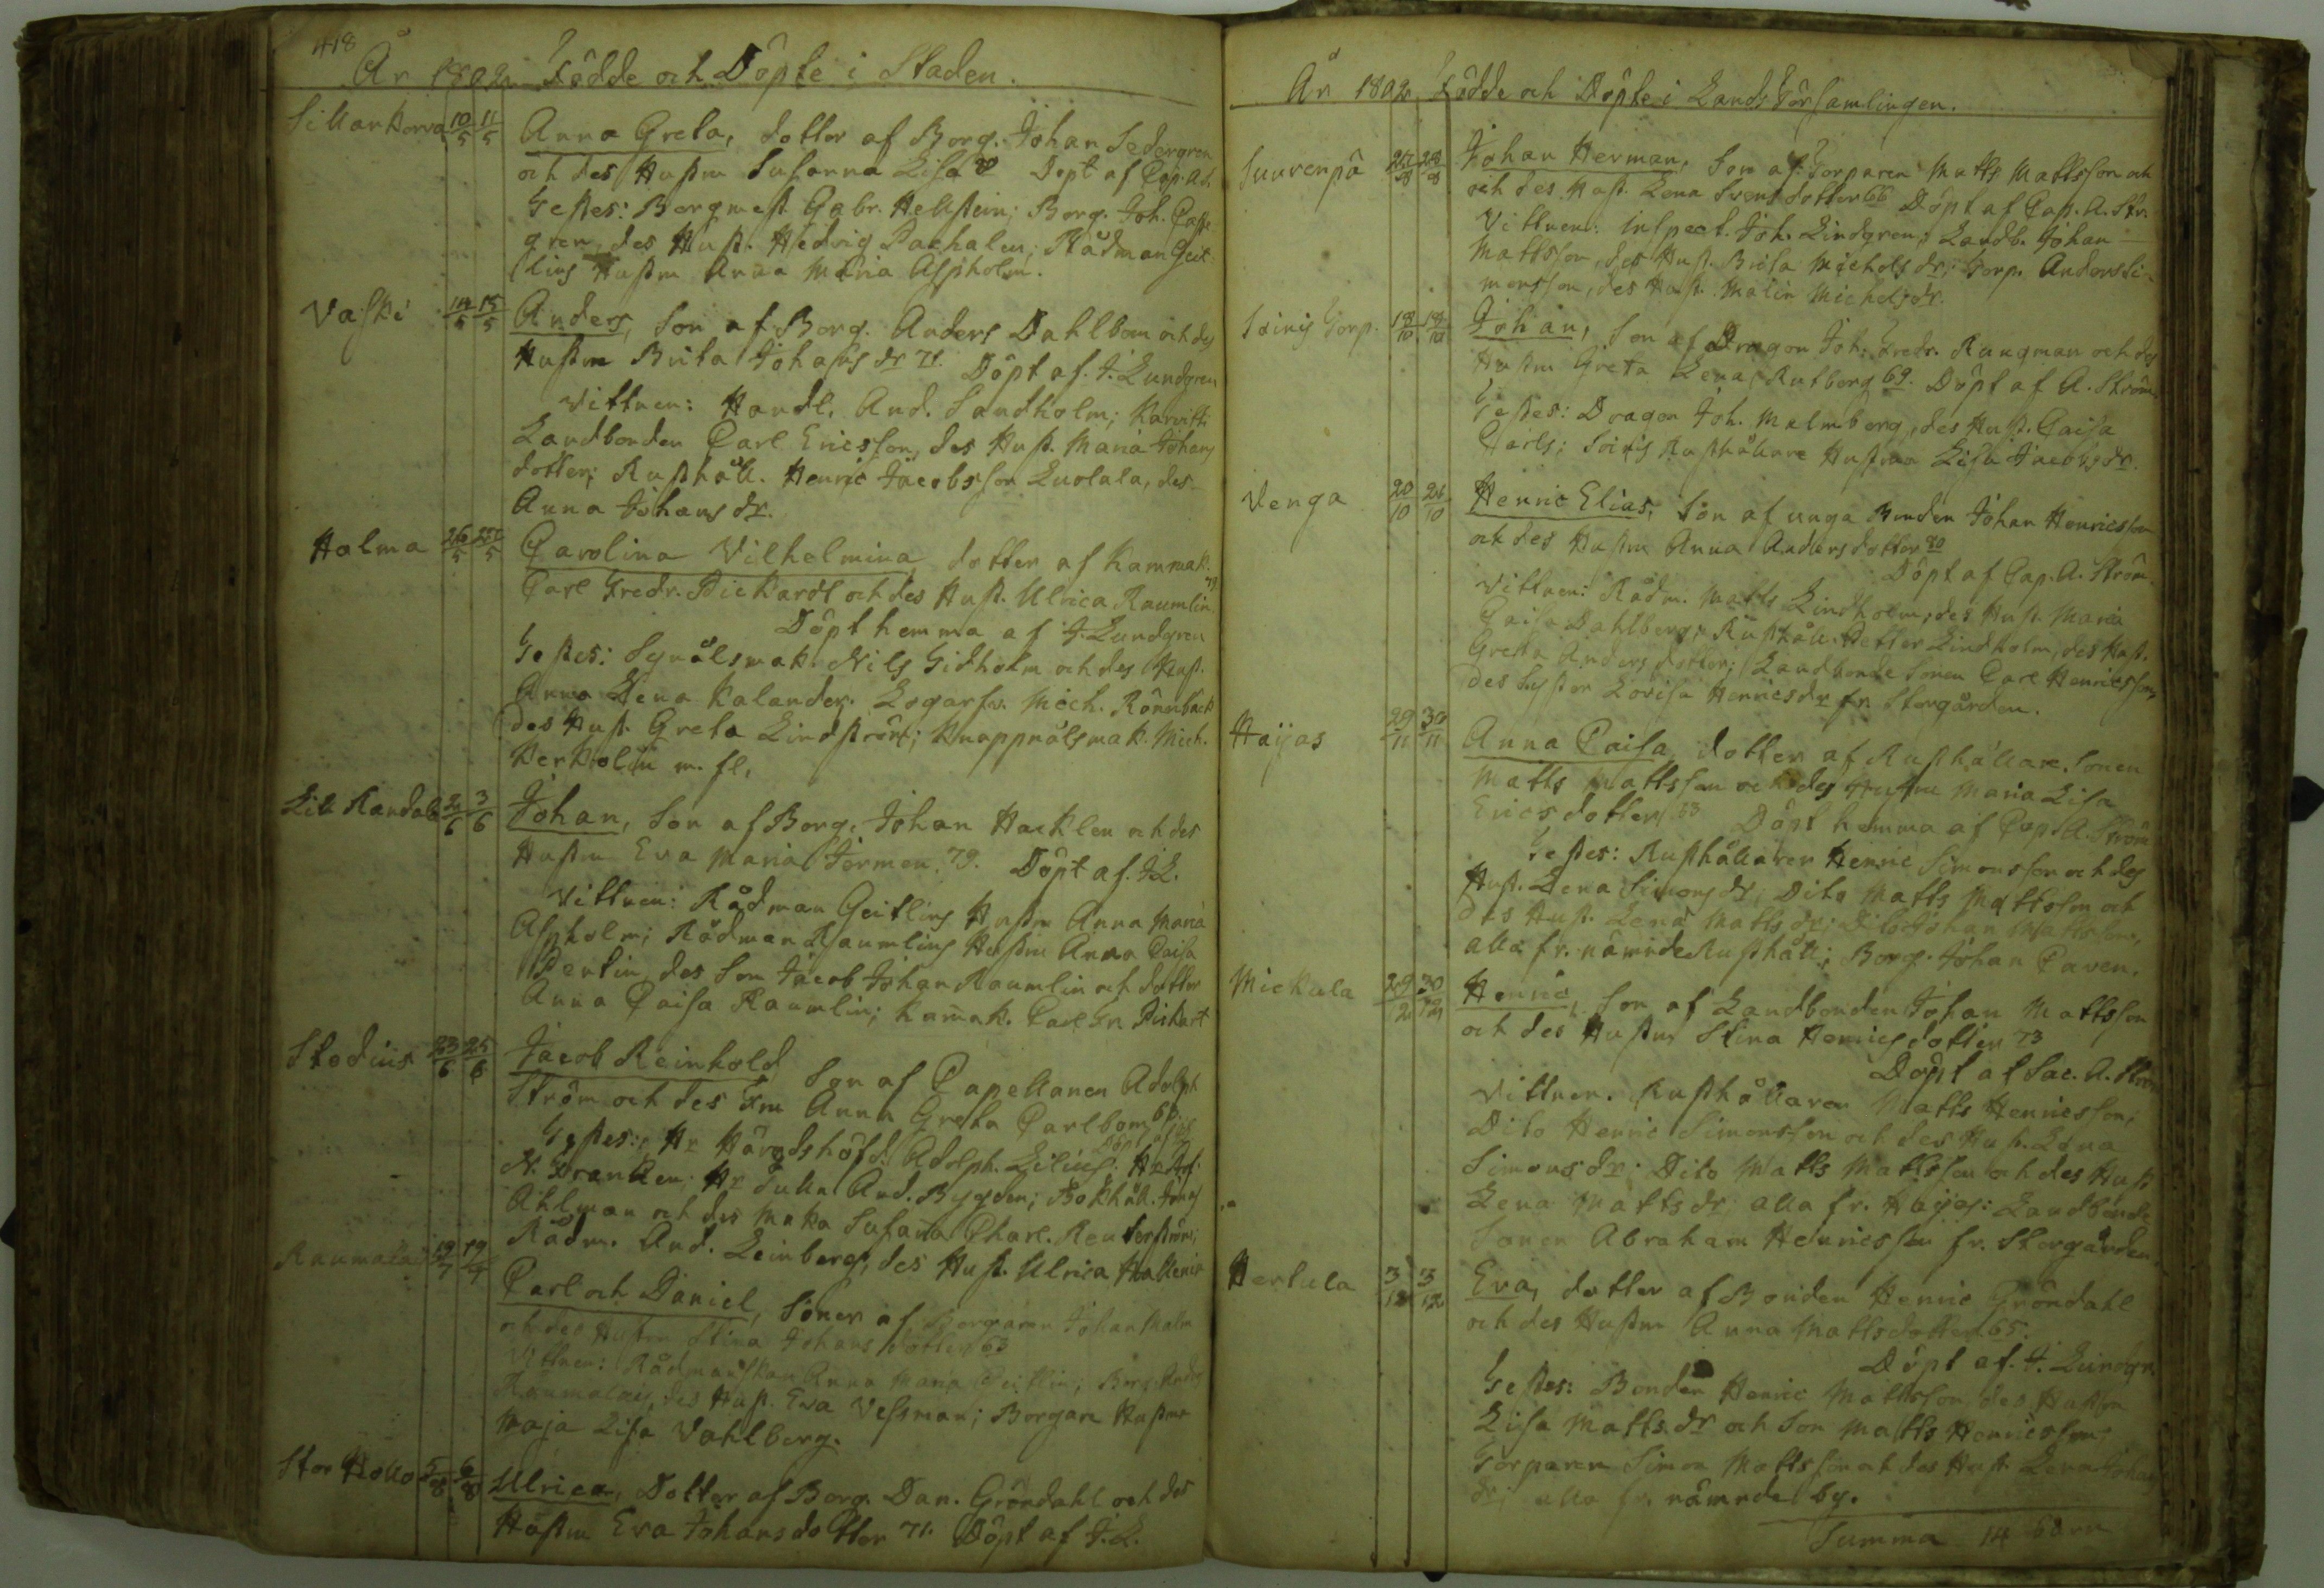 418
År 1802 Födde och Döpte i Staden.
Sillankorva 10/5 11/5 Anna Greta, dotter af Borg. Johan Sedergren
och des Hustru Susanna Lisa Döpt af Cap. A.
Testes: Borgmest. Gabr. Hellstein; Borg. Joh. Cast-
gren, des Hust. Hedvig Pachalen; Rådman Geit-
lins Hustru Anna Maria Aspholm.
Vaski 14/5 15/5 Anders, Son af Borg. Anders Dahlbom och des
Hustru Brita Johans dr 71. Döpt af J. Lundgren
Vittnen: Handl. And. Sandholm;
Landbonden Carl Ericsson, des Hust. Maria Johans
dotter; Rusthåll. Henric Jacobsson Luolala, des
Anna Johans dr.
Halma 26/5 27/5 Carolina Vilhelmina, dotter af Kammak.
Carl Fredr. Dickardt och des Hust. Ulrica Raumlin 79
Döpt hemma af J. Lundgren
Testes: Synålsmak. Nils Gidholm och des Hust.
Anna Lena Kalander. Logarfv. Mich. Rönnback
des Hust. Greta Lindström; Knappnålsmak. Mich.
Kerkolin m. fl.
Lill Randala 2/6 3/6 Johan, Son af Borg. Johan Hacklen och des
Hustru Eva Maria Termen. 79. Döpt af J.L.
Vittnen: Rådman Geitlins Hustru Anna Maria
Aspholm; Rådman Raumlins Hustru Anna Caisa
Perlin, des Son Jacob Johan Raumlin och dotter
Anna Caisa Raumlin; Kammak. Carl Fr Dickart
Stodius 23/6 25/6 Jacob Reinhold, Son af Capellanen Adolph
Ström och des Fru Anna Greta Carlbom
Testes: Hr Häradshöfd. Adolph Lilius.
N. Franken; Hr Tulln. And. Bygden; Bokhåll. Jonas
Ahlman och des Maka Susana Charl. Reuterström;
Rådm. And. Leinberg, des Hust. Ulrica Hallenia
Raumalai 19/7 19/7 Carl och Daniel, Söner af Borgaren Johan Malm
och des Hustru Stina Johans dotter 63
Vittnen: Rådmanskan Anna Maria Geitlin; Borg. Anders
Raumalai, des Hust. Eva Vessman; Borgare Hustru
Maja Lisa Vahlberg.
Stor Hollo 5/8 6/8 Ulrica, Dotter af Borg. Dan. Gröndahl och des
Hustru Eva Johansdotter 71. Döpt af J.L.
År 1802 Födde och Döpte i Lands Församlingen.
Suurenpä 27/8 28/8 Johan Herman, Son af Torparen Matts Mattsson och
och des Hust. Lena Svensdotter 66 Döpt af Cap. A. Str.
Vittnen: Inspect. Joh. Lindgren; Landb. Johan
Mattsson, des Hust. Brita Michels dr; Torp. Anders Si-
monsson, des Hust. Malin Michels dr.
Soinis Torp. 18/10 18/10 Johan, Son af Dragon Joh. Fredr. Rangman och des
Hustru Greta Lena Rutberg 69. Döpt af A. Ström
Testes: Dragon Joh. Malmberg, des Hust. Caisa
Carls; Soinis Rusthållare Hustrun Lisa Jacobsdr.
Venga 20/10 21/10 Henric Elias, Son af unga Bonden Johan Henricsson
och des Hustru Anna Andersdotter 80
Döpt af Cap. A. Ström
Vittnen: Rådm. Matts Lindholm, des Hust. Maria
Caisa Dahlberg; Rusthåll. Petter Lindholm, des Hust.
Greta Anders dotter; Landbonde Sonen Carl Henricsson,
des Syster Lovisa Henricsdr fr. Storgården.
Haijas 29/11 30/11 Anna Caisa, dotter af Rusthållare Sonen
Matts Mattsson och des Hustru Maria Lisa
Ericsdotter Döpt hemma af Cap. A. Ström
Testes: Rusthållaren Henric Simonsson och des
Hust. Lena Simons dr; Dito Matts Mattsson och
des Hust. Lena Matts dr; Dito Johan Mattsson,
alla fr. nämnde Rusthåll; Borg. Johan Paven.
Mickula 29/12 30/12 Henric, Son af Landbonden Johan Mattsson
och des Hustru Stina Henricsdotter 73
Döpt af Sac. A. Ström
Vittnen. Rusthållaren Matts Henricsson;
Dito Henric Simonsson och des Hust. Lena
Simonsdr; Dito Matts Mattsson och des Hust.
Lena Mattsdr alla fr. Haijas: Landbonde
Sonen Abraham Henricsson fr. Storgården.
Hertula 3/12 3/12 Eva, dotter af Bonden Henric Gröndahl
och des Hustru Anna Mattsdotter 65.
Döpt af J. Lundgr.
Testes: Bonden Henric Mattsson des Hustru
Lisa Matts dr och Son Matts Henricsson;
Torparen Simon Mattsson och des Hust. Lena Johans
dr; alla fr. nämnde by.
Summa 14 barn